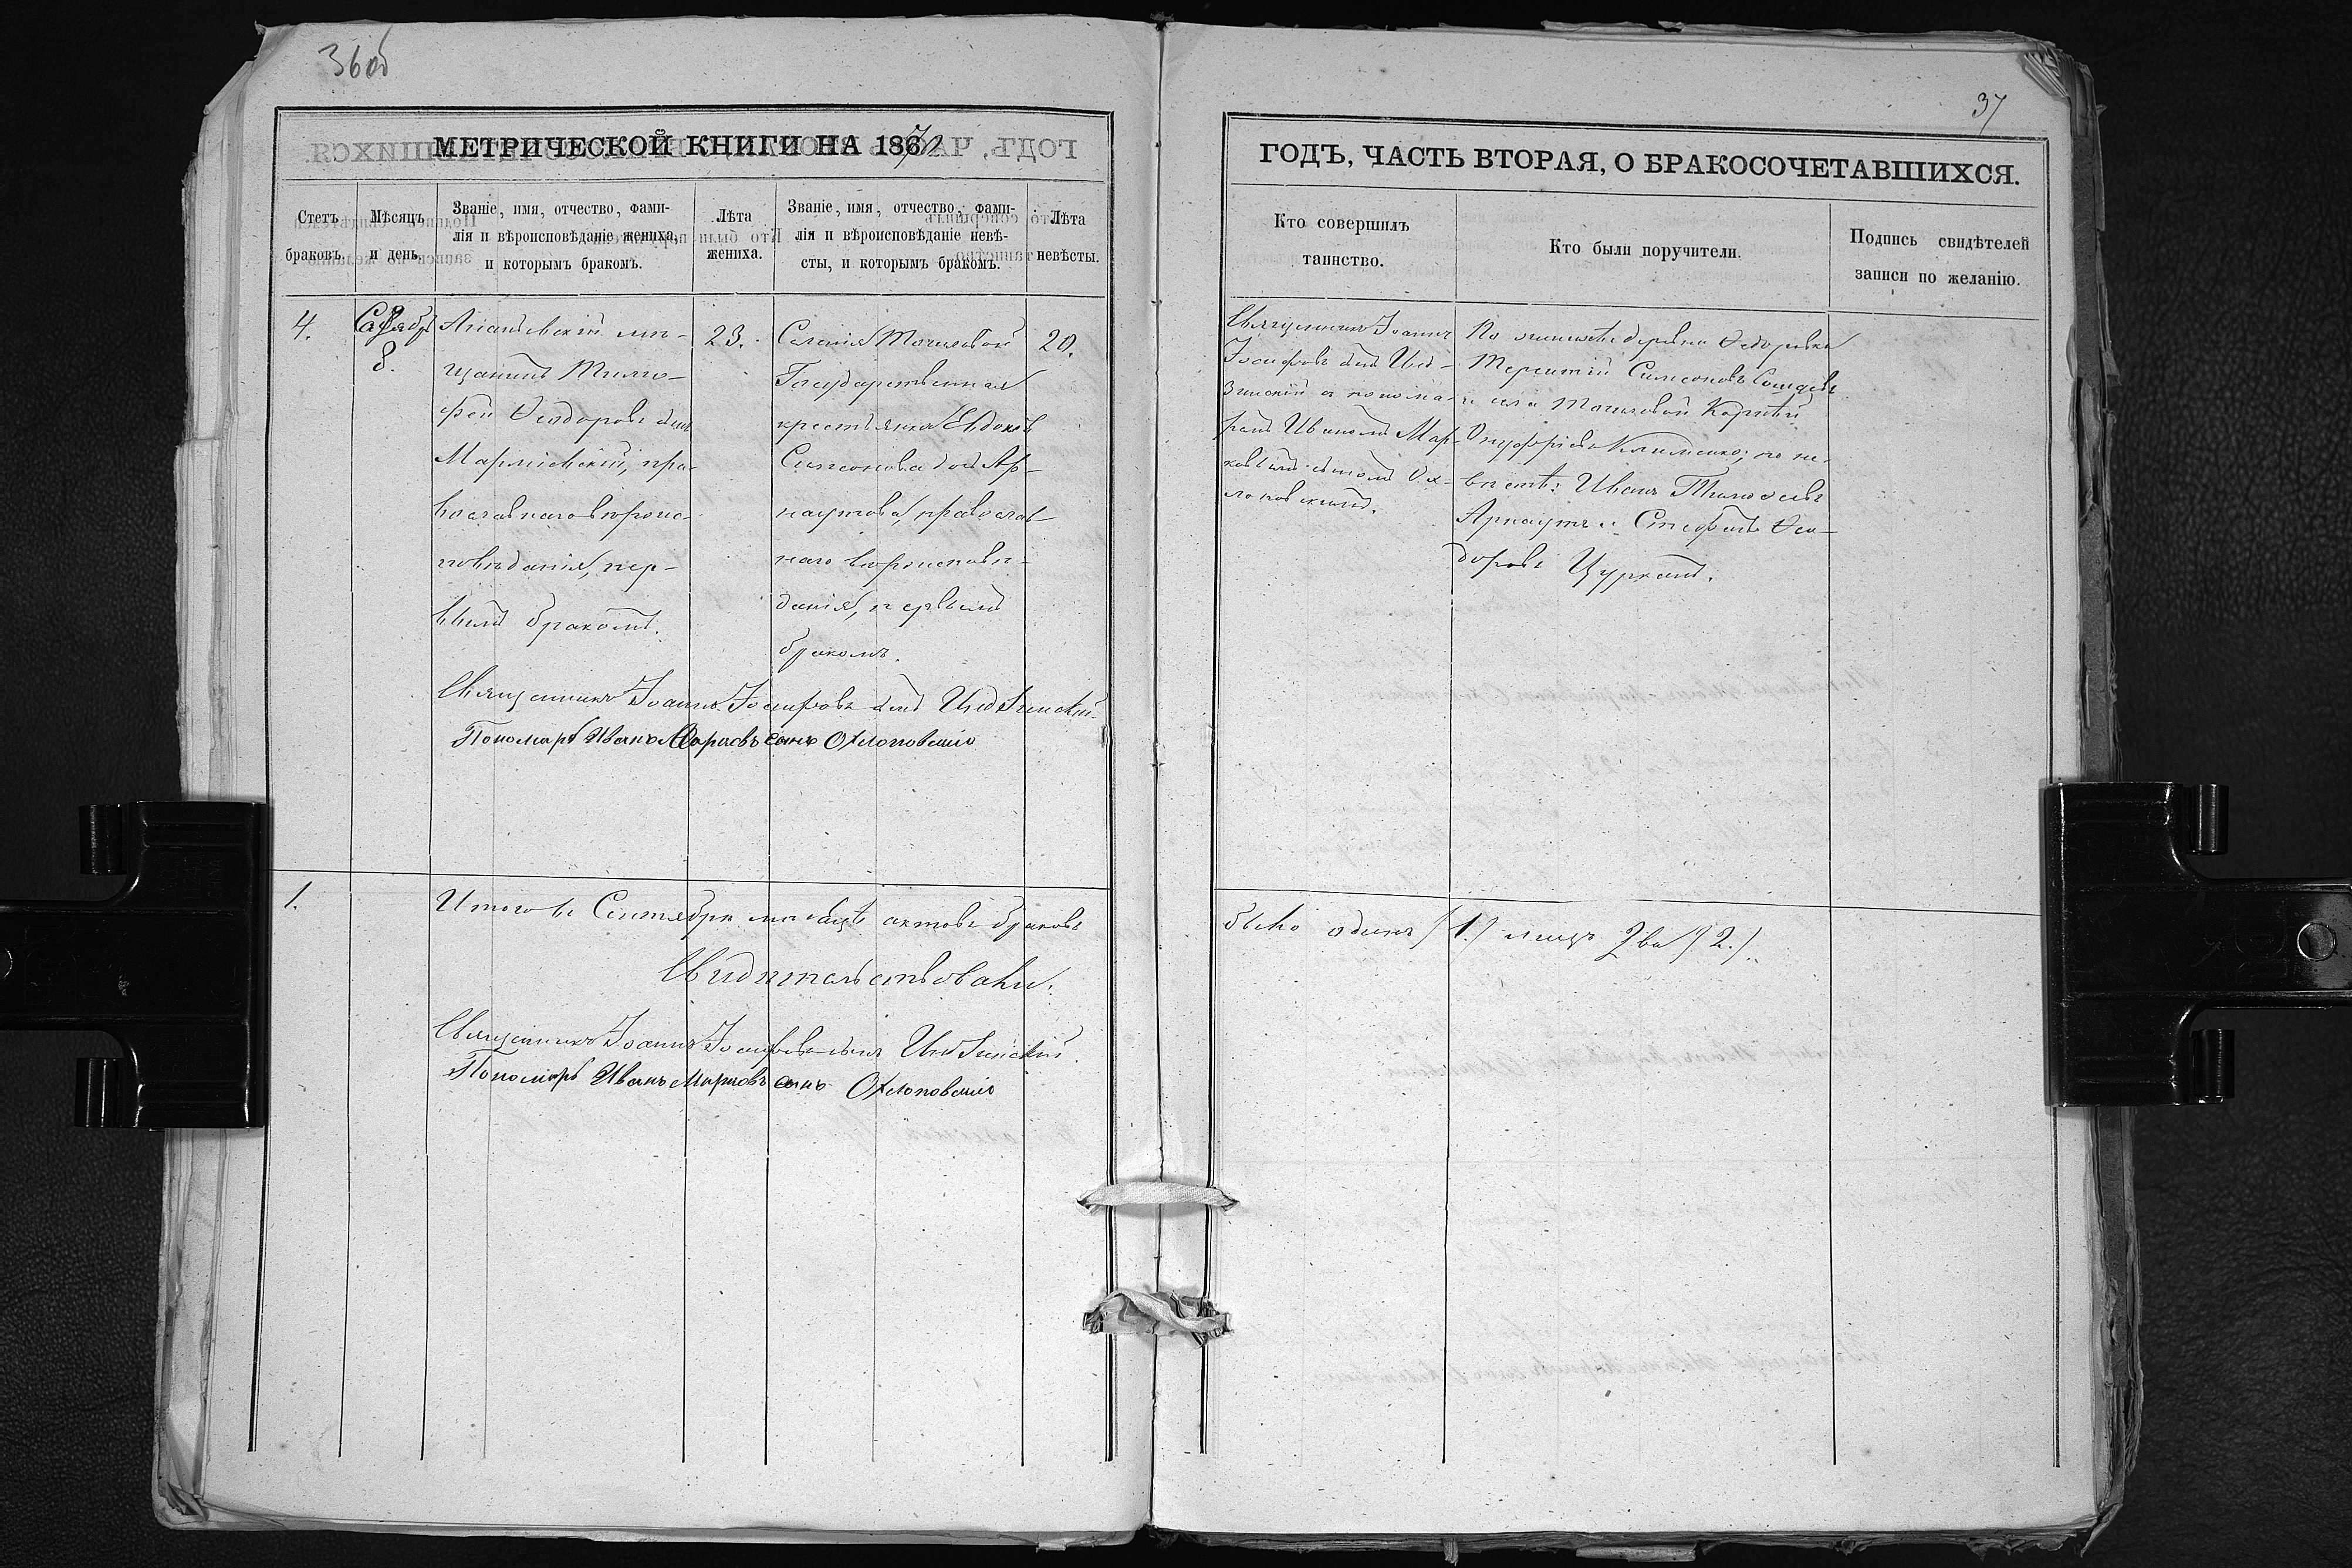 36об
МЕТРИЧЕСКОЙ КНИГИ НА 1870
Счетъ браковъ.
Мѣсяцъ и день.
Званіе, имя, отчество, фами-
лія и вѣроисповѣданіе жениха,
и которымъ бракомъ.
Лѣта
жениха.
Званіе, имя, отчество, фами-
лія и вѣроисповѣданіе невѣ-
сты, и которымъ бракомъ.
Лѣта
невѣсты.
4.
8.
Ананьевскій мѣ-
щанинъ Тимо-
фей Ѳеодоровъ сынъ
православнаго вѣроис-
повѣданія, пер-
вымъ бракомъ.
23.
Селенія Точиловой
Государственная
крестьянка Евдокія
Симеонова дочь Ар-
наутова, православ-
наго вѣроисповѣ-
данія, первымъ
бракомъ.
20.
Священникъ Іоаннъ Іосифовъ сынъ
Пономарь Иванъ Марковъ сынъ Охлоповскій
1.
Итого въ Сентябрѣ мѣсяцѣ актовъ браковъ
Свидѣтельствовали:
Священникъ Іоаннъ Іосифовъ сынъ
Пономарь Иванъ Марковъ сынъ Охлоповскій
37
ГОДЪ, ЧАСТЬ ВТОРАЯ, О БРАКОСОЧЕТАВШИХСЯ.
Кто совершилъ
таинство.
Кто были поручители.
Подпись свидѣтелей
записи по желанію.
Священникъ Іоаннъ
Іосифовъ сынъ
съ понома-
ремъ Иваномъ Мар-
ковымъ сыномъ Ох-
лоповскимъ.
По женихѣ: деревни Ѳедоровки
Терентій Симеоновъ
и села Точиловой Корнѣй
Онуфріевъ Клименко; по не-
вѣстѣ: Иванъ Тимоѳеевъ
Арнаутъ и Стефанъ Ѳео-
доровъ Цурканъ.
было одинъ (1.) лицъ два (2.).